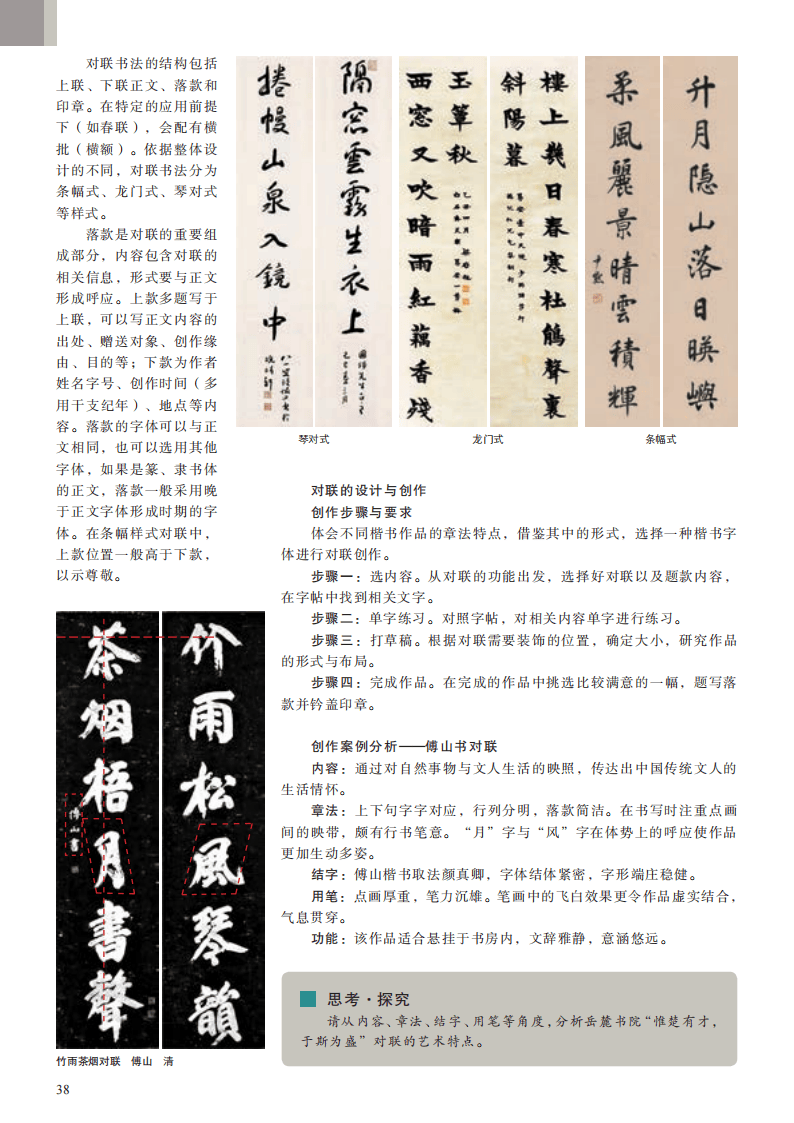 对联书法的结构包括
上联、下联正文、落款和
印章。在特定的应用前提
下（如春联），会配有横
批（横额）。依据整体设
计的不同，对联书法分为
条幅式、龙门式、琴对式
等样式。
落款是对联的重要组
成部分，内容包含对联的
相关信息，形式要与正文
形成呼应。上款多题写于
上联，可以写正文内容的
出处、赠送对象、创作缘
由、目的等；下款为作者
姓名字号、创作时间（多
用干支纪年）、地点等内
容。落款的字体可以与正
文相同，也可以选用其他
字体，如果是篆、隶书体
的正文，落款一般采用晚
于正文字体形成时期的字
体。在条幅样式对联中，
上款位置一般高于下款，
以示尊敬。
隔窗雲霧生衣上
捲幔山泉入鏡中
琴对式
樓上幾日春寒杜鵑聲裏
斜陽暮
玉簟秋
西窓又吹暗雨紅藕香殘
龙门式
升月隐山落日暎嶼
柔風麗景晴雲積輝
条幅式
对联的设计与创作
创作步骤与要求
体会不同楷书作品的章法特点，借鉴其中的形式，选择一种楷书字
体进行对联创作。
步骤一：选内容。从对联的功能出发，选择好对联以及题款内容，
在字帖中找到相关文字。
步骤二：单字练习。对照字帖，对相关内容单字进行练习。
步骤三：打草稿。根据对联需要装饰的位置，确定大小，研究作品
的形式与布局。
步骤四：完成作品。在完成的作品中挑选比较满意的一幅，题写落
款并钤盖印章。
创作案例分析——傅山书对联
内容：通过对自然事物与文人生活的映照，传达出中国传统文人的
生活情怀。
章法：上下句字字对应，行列分明，落款简洁。在书写时注重点画
间的映带，颇有行书笔意。“月”字与“风”字在体势上的呼应使作品
更加生动多姿。
结字：傅山楷书取法颜真卿，字体结体紧密，字形端庄稳健。
用笔：点画厚重，笔力沉雄。笔画中的飞白效果更令作品虚实结合，
气息贯穿。
功能：该作品适合悬挂于书房内，文辞雅静，意涵悠远。
竹雨松風琴韻
茶烟梧月書聲
傅山書
竹雨茶烟对联 傅山 清
思考·探究
请从内容、章法、结字、用笔等角度，分析岳麓书院“惟楚有才，
于斯为盛”对联的艺术特点。
38